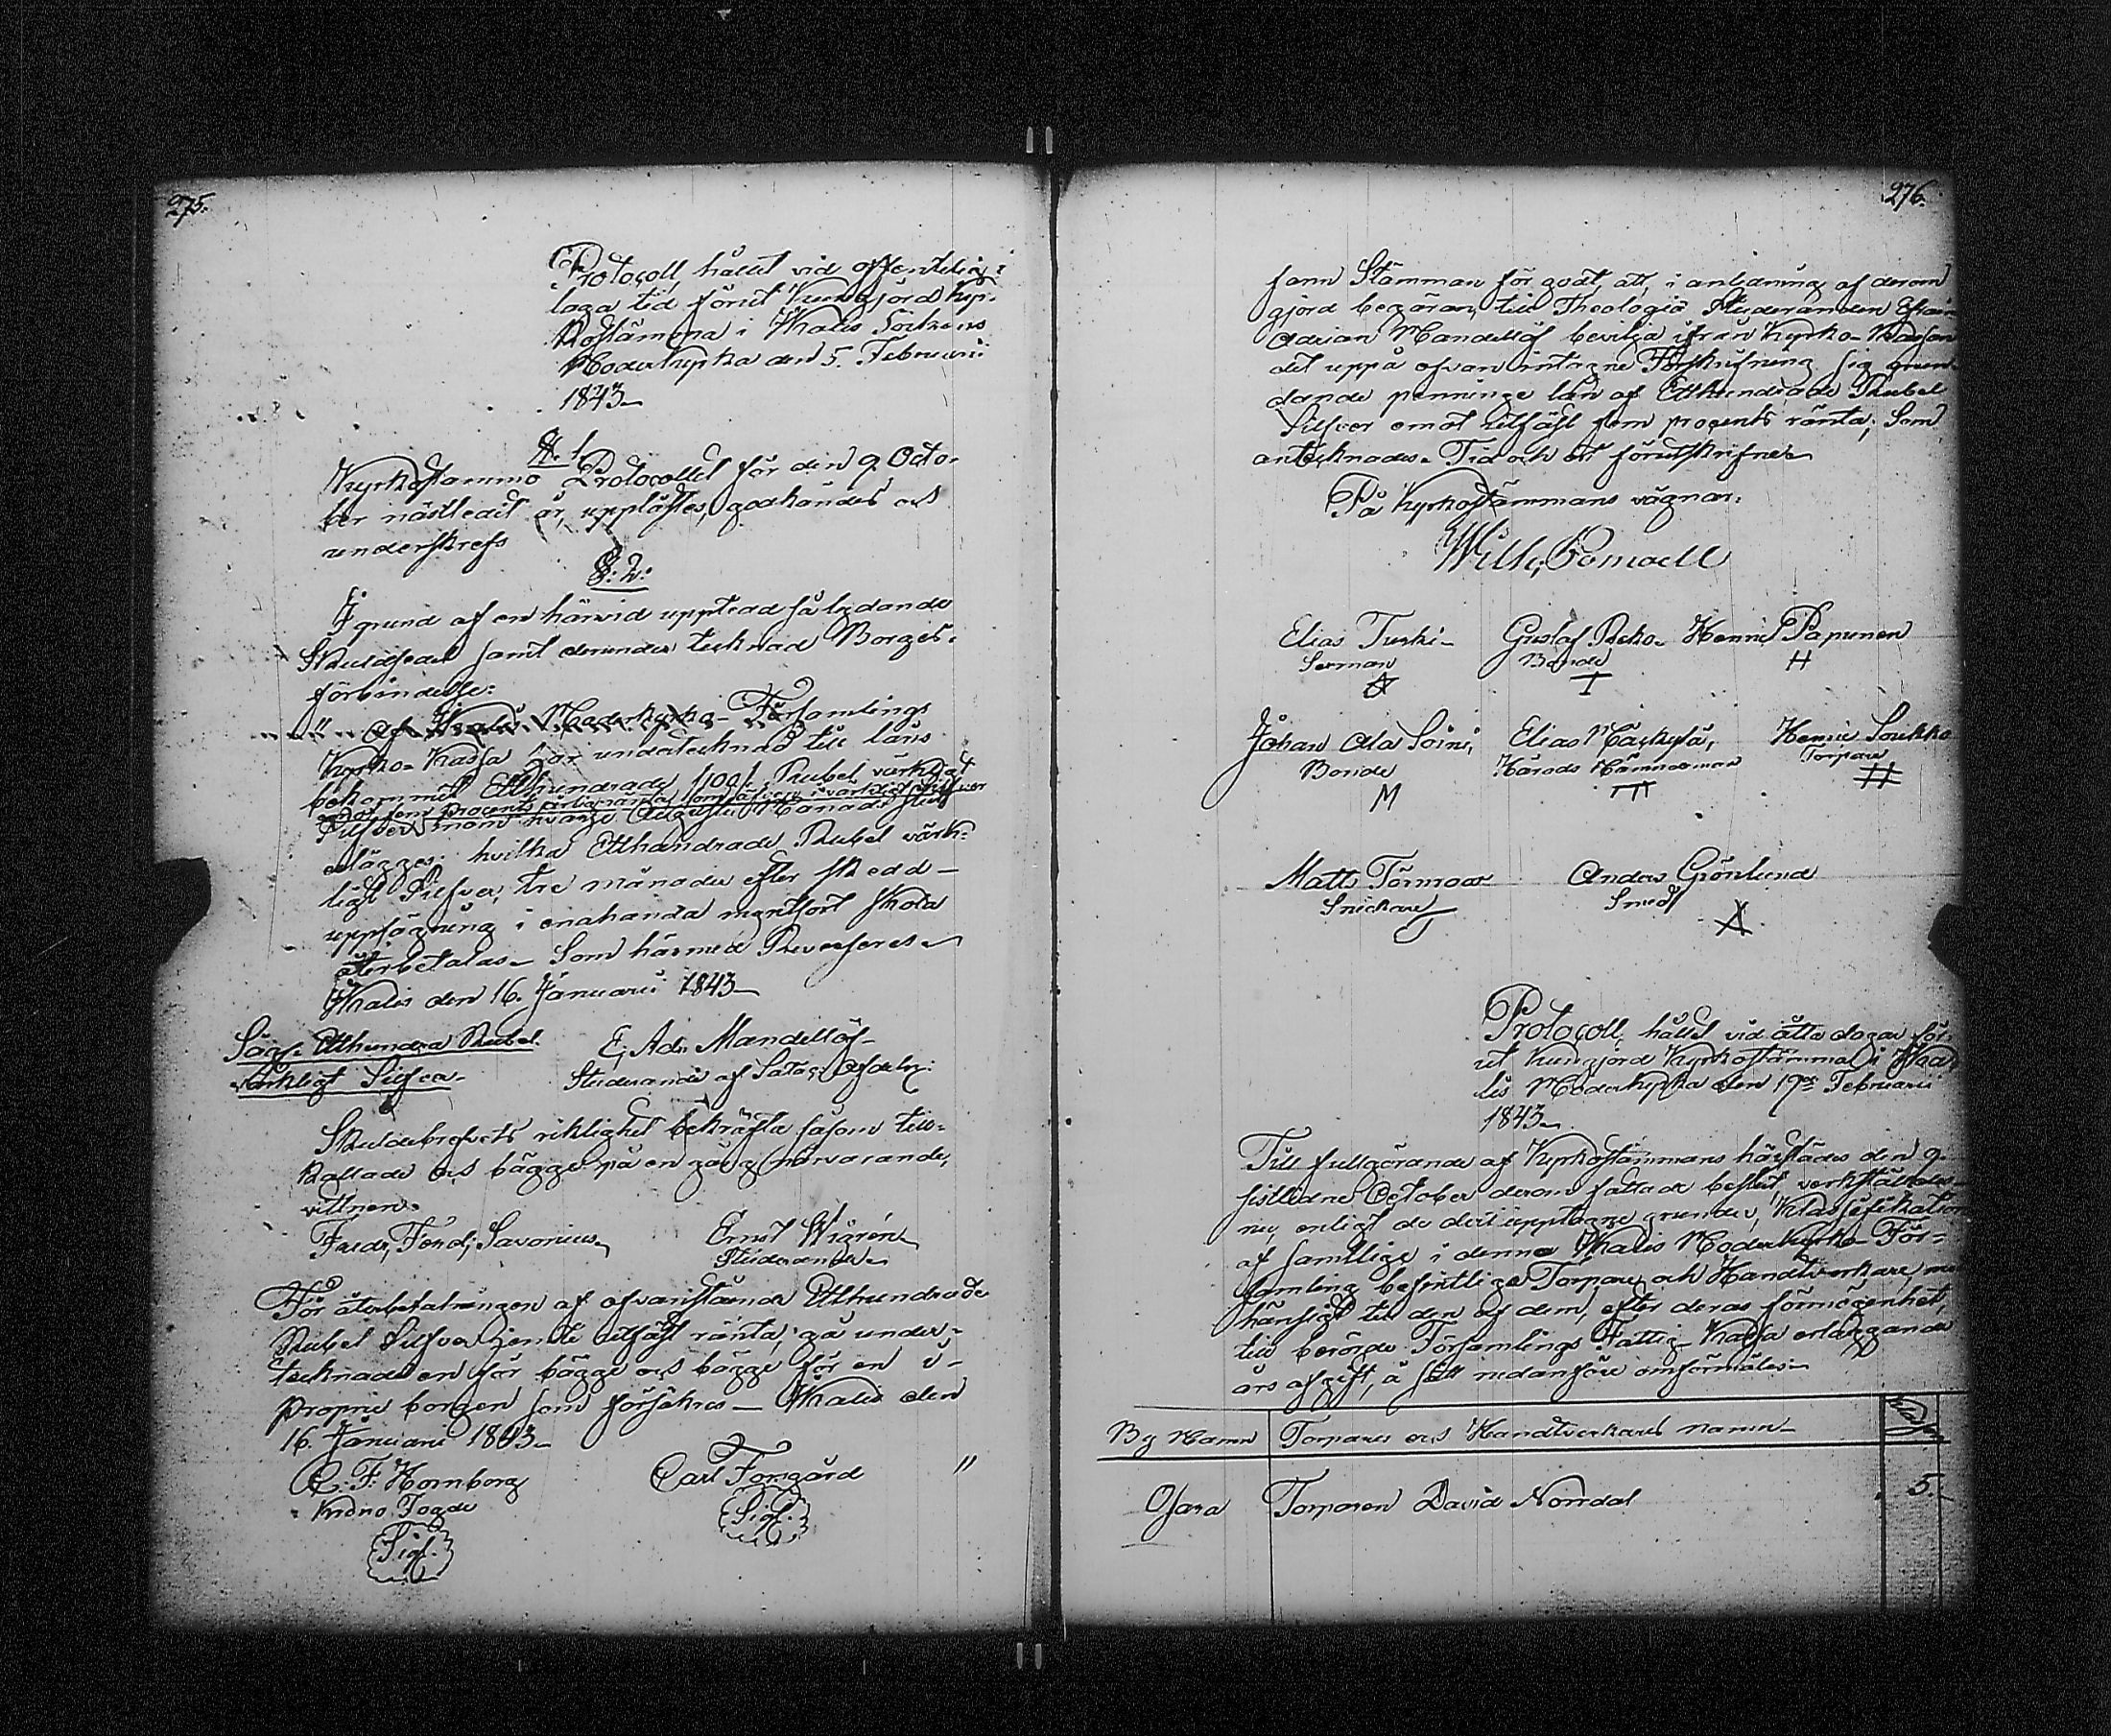 275.
Protocoll, hållit vid offentelig i
laga tid förut kungjord kyr-
kostämma i Ikalis Sockens
Moderkyrka den 5. Februarii
1843_
§. 1.
Kyrkostämmo Protocollet för den 9. Octo-
ber nästledit år, upplästes, godkändes och
underskrefs
§: 2:
I grund af en härvid uppte​ad så lydande
Skuldsedel samt derunder tecknad Borges-
förbindelse:
" Af Ikalis Moderkyrko-Församlings
Kyrko-Kassa har undertecknad till låns
bekommit Etthundrade /100/ Rubel värkligt
emot fem procents årlig ränta, som äfven i värkligt silfver
Silfver inom hvarje Augusti Månads slut
erlägges; hvilka Etthundrade Rubel värk-
ligt Silfver, tre månader efter skedd _
uppsägning i enahanda myntsort skola
återbetalas_ Som härmed Reverseres_
Ikalis den 16. Januarii 1843_
Säger Etthundra Rubel
värkligt Silfver_
E; Adr. Mandellöf_
Studerande af Satac; Afdeln:
Skuldebrefvets riktighet bekräfta såsom till-
kallade och bägge på en gång närvarande,
vittnen.
Fredr; Ferd; Savonius_
Ernst Widrén_
Studerande_
För återbetalningen af ofvanstående Etthundrade
Rubel Silfver jemte utfäst ränta, gå under-
tecknade en för bägge och bägge för en i _
proprie borgen som försäkras _ Ikalis den
16. Januarii 1843_
C. F. Hornborg
Krono Fogde
Sigl.
Carl Forsgård "
Sigl.
276.
fann Stämman för godt, att, i anledning af derom
gjord begäran, till Theologiæ Studeranden Efraim
Adrian Mandellöf bevilja ifrån Kyrko-Kassan
det uppå ofvan intagne Förskrifning sig grun-
dande penninge lån af Etthundrade Rubel
Silfver emot utfäst fem procents ränta; Som
antecknades. Tid och ort förutskrifne_
På Kyrkostämmans vägnar:
Wilh; Pomoell
Elias Turki_ Gustaf Reko_ Henric Papunen
Sexman Bonde H
Johan Ala Soini, Elias Mäckylä, Henric Soukko
Bonde Härads Nämndeman Torpare
M
Matts Törnroos Anders Grönlund
Snickare Smed
Protocoll, hållit vid åtta dagar för-
ut kungjord Kyrkostämma i Ika-
lis Moderkyrka den 19de Februarii
1843_
Till fullgörande af Kyrkostämmans härstädes den 9.
sistledne October derom fattade beslut, verkställdes
nu, enligt de då upptagne grunder, Klassifikation
af samtlige i denna Ikalis Moderkyrko-För-
samling befintlige Torpare och Handtverkare, med
hänsigt till den af dem, efter deras förmögenhet,
till berörde Församlings Fattig-Kassa erläggande
års afgift, å sätt nedanföre omförmäles_
By Namn Torpares och Handtverkares namn_
Osara Torparen David Norrdal 5.